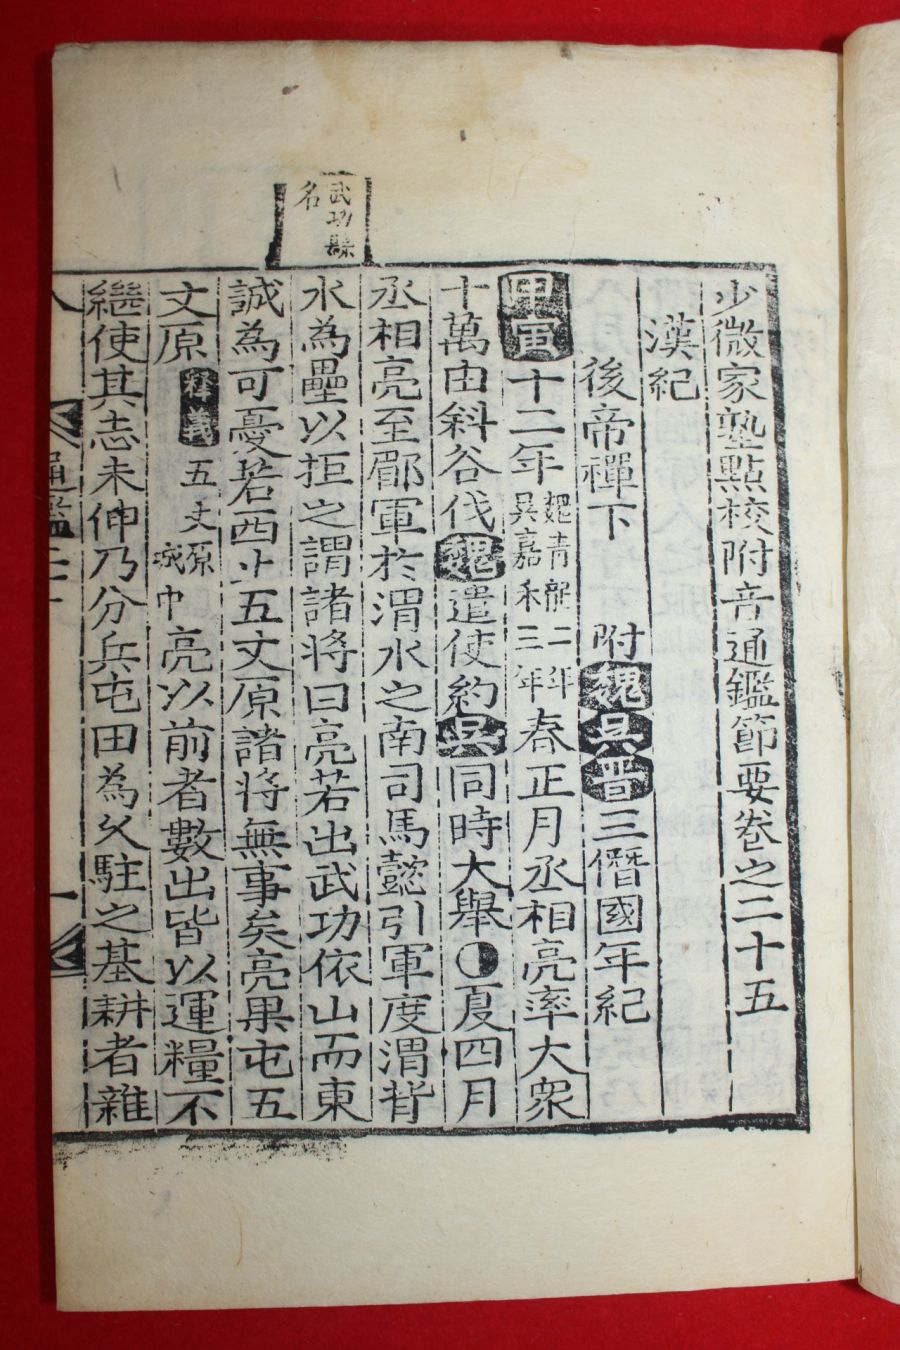 少微家塾點校附音通鑑節要卷之二十五
漢紀
後帝禪下　附魏吳晋三僭國年紀
甲寅十二年魏青龍二年吳嘉禾三年春正月丞相亮率大衆
十萬由斜谷伐魏遣使約吳同時大舉◑夏四月
丞相亮至郿軍於渭水之南司馬懿引軍度渭背
水為壘以拒之謂諸將曰亮若出武功依山而東
誠為可憂若西上五丈原諸將無事矣亮果屯五
武功縣名
丈原釋義五丈原城中亮以前者數出皆以運糧不
繼使其志未伸乃分兵屯田為久駐之基耕者雜
通鑑二十